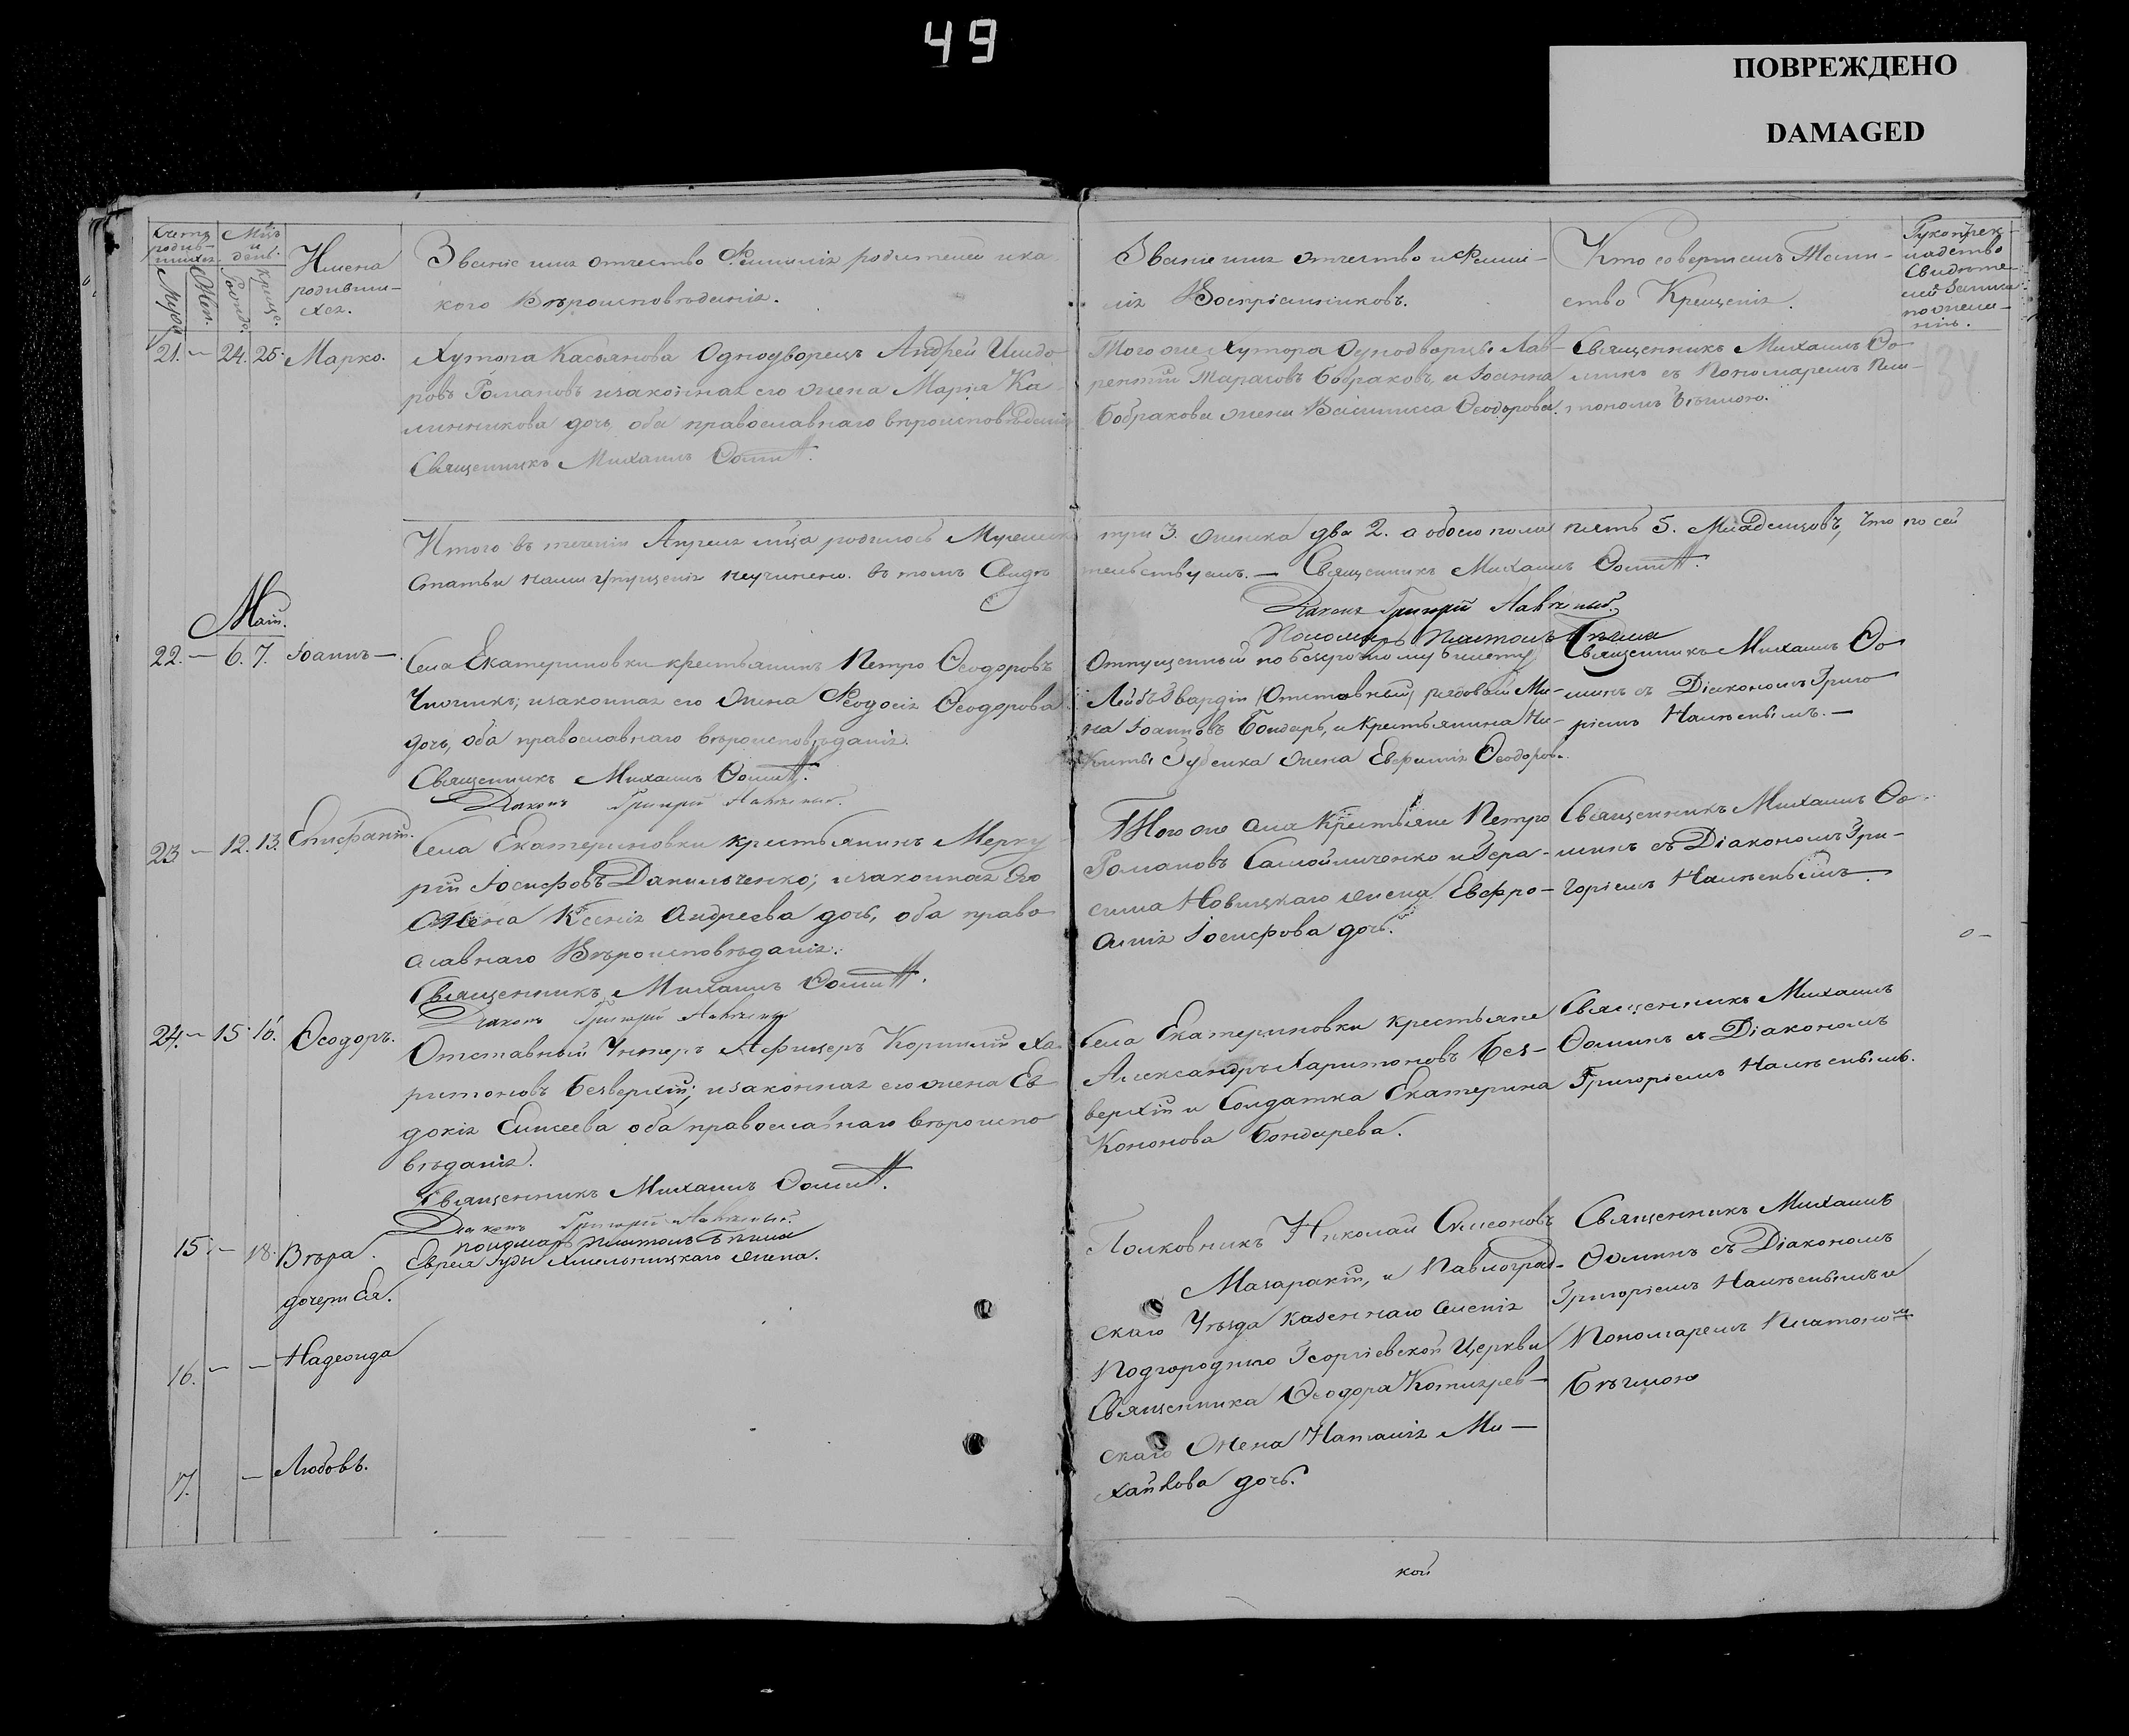 49
ПОВРЕЖДЕНО
DAMAGED
Счетъ родив-шихся
Мцъ и день
Муж. Жен. Рожд. Крещ.
Имена родивши-хся.
Званіе имя отчество Фамилія родителей и ка-
кого Вѣроисповѣданія.
Званіе имя отчество и Фами-
лія Воспріемниковъ.
Кто совершалъ Таин-
ство Крещенія.
21. — 24. 25. Марко.
Хутора Касьянова Однодворецъ Андрей Исидо-
ровъ Романовъ и законная его жена Марія Ка-
линникова дочь, оба православнаго вѣроисповѣданія
Священникъ Михаилъ Ѳоминъ.
Того же Хутора Однодворцы Лав-
рентій Тарасовъ Бобраковъ, и Іоанна
Бобракова жена Василисса Ѳеодорова.
Священникъ Михаилъ Ѳо-
минъ съ Пономаремъ Пла-
тономъ Бѣлимою.
134
Итого въ теченіи Апреля мца родилось Мужеска три 3. женска два 2. а обоего пола пять 5. Младенцовъ, что по сей
статьи нами упущенія неучинено. въ томъ Свидѣтельствуемъ. — Священникъ Михаилъ Ѳоминъ.
Діаконъ Григорій
Пономарь Платонъ
Май.
22. — 6. 7. Іоаннъ —.
Села Екатериновки крестьянинъ Петро Ѳеодоровъ
и законная его жена Ѳеодосія Ѳеодорова
дочь, оба православнаго вѣроисповѣданія.
Священникъ Михаилъ Ѳоминъ.
Діаконъ Григорій
Отпущенный по безсрочному билету
Лейбъ Гвардіи (Отставный) рядовой Ми-
на Іоанновъ Бондарь, и крестьянина Ни-
киты жена Евфимія Ѳеодоров.
Священникъ Михаилъ Ѳо-
минъ съ Діакономъ Григо-
ріемъ —
23 — 12. 13. Епифаній.
Села Екатериновки крестьянинъ Мерку-
рій Іосифовъ Данильченко; и законная Его
Жена Ксенія Андреева дочь, оба право-
славнаго Вѣроисповѣданія.
Священникъ Михаилъ Ѳоминъ.
Діаконъ Григорій
Того же села Крестьяне Петро
Романовъ Самойличенко и Гера-
сима Новицкаго жена Евфро-
синія Іосифова дочь.
Священникъ Михаилъ Ѳо-
минъ съ Діакономъ Гри-
горіемъ
24. — 15. 16. Ѳеодоръ.
Отставный Унтеръ Афицеръ Корнилій Ха-
ритоновъ Безверхій; и законная его жена Ев-
докія Елисеева оба православнаго вѣроиспо-
вѣданія.
Священникъ Михаилъ Ѳоминъ.
Діаконъ Григорій
Пономарь Платонъ
Села Екатериновки крестьяне
Александръ Харитоновъ Без-
верхій и Солдатка Екатерина
Кононова Бондарева.
Священникъ Михаилъ
Ѳоминъ съ Діакономъ
Григоріемъ
15 — 18. Вѣра.
дочери Ея.
16. — — Надежда
17. — Любовъ.
Еврея Іуды Хмельницкаго жена.
Полковникъ Николай Симеоновъ
Мазаракій, и Павлоград-
скаго Уѣзда казеннаго селенія
Подгороднаго Георгіевской Церкви
Священника Ѳеодора Котлярев-
скаго Жена Наталія Ми-
хайлова дочь.
Священникъ Михаилъ
Ѳоминъ съ Діакономъ
Григоріемъ и
Пономаремъ Платоном
Бѣлимою
кой